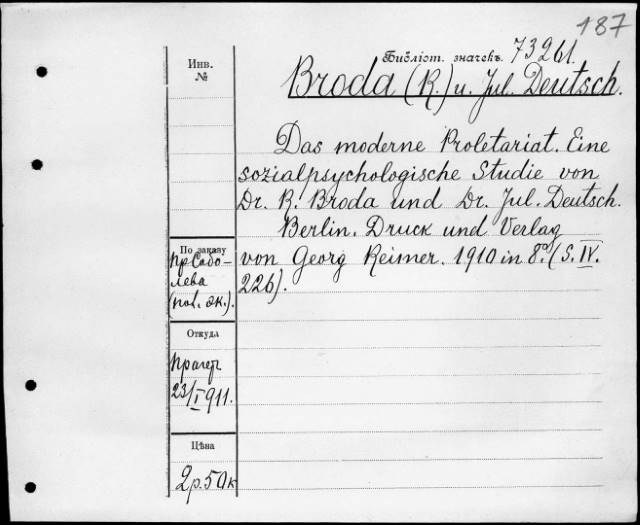 187
Библіот. значекъ. 73261.
Инв.
№
Broda (R.) u. Jul. Deutsch.
Das moderne Proletariat. Eine
sozialpsychologische Studie von
Dr. R. Broda und Dr. Jul. Deutsch.
Berlin. Druck und Verlag
von Georg Reimer. 1910 in 8º. (S. IV.
226).
По заказу
пр Собо-
лева
(пол. эк.).
Откуда
Прагер
23/I 911.
Цѣна
2 р. 50 к